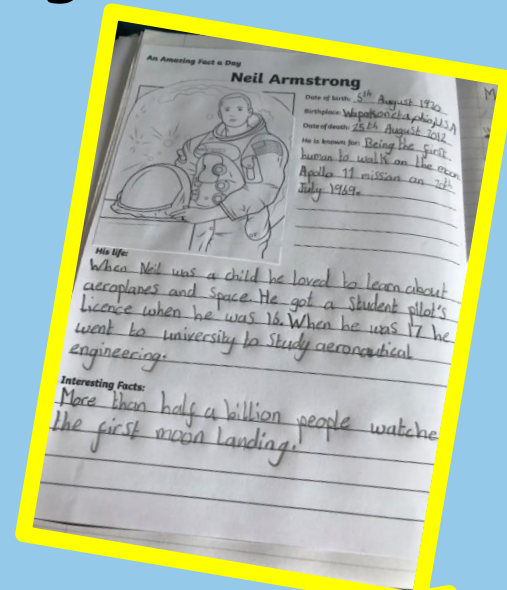 An Amazing Fact a Day
Neil Armstrong
Date of birth: 5th August 1930
Birthplace: Wapakoneta, Ohio, USA
Date of death: 25th August 2012
He is known for: Being the first
human to walk on the moon
Apollo 11 mission on 20th
July 1969.
His life:
When Neil was a child he loved to learn about
aeroplanes and space. He got a student pilot's
licence when he was 16. When he was 17 he
went to university to study aeronautical
engineering.
Interesting Facts:
More than half a billion people watche
the first moon landing.